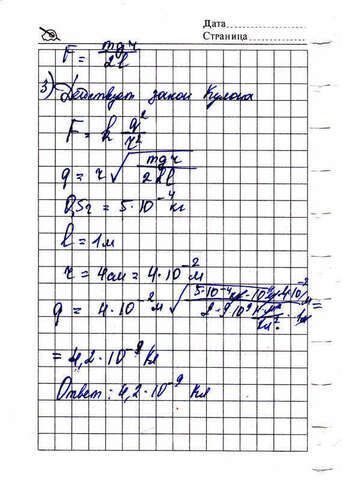 Дата
Страница
F = mgr / 2l
3) Действует закон Кулона
F = k q² / r²
q = r √(mgr / 2kl)
0,5г = 5·10⁻⁴ кг
l = 1м
r = 4см = 4·10⁻² м
q = 4·10⁻² м √(5·10⁻⁴ кг · 10 · 4·10⁻² м / 2·9·10⁹ Н·м²/Кл² · 1м) =
= 4,2·10⁻⁹ Кл
Ответ: 4,2·10⁻⁹ Кл